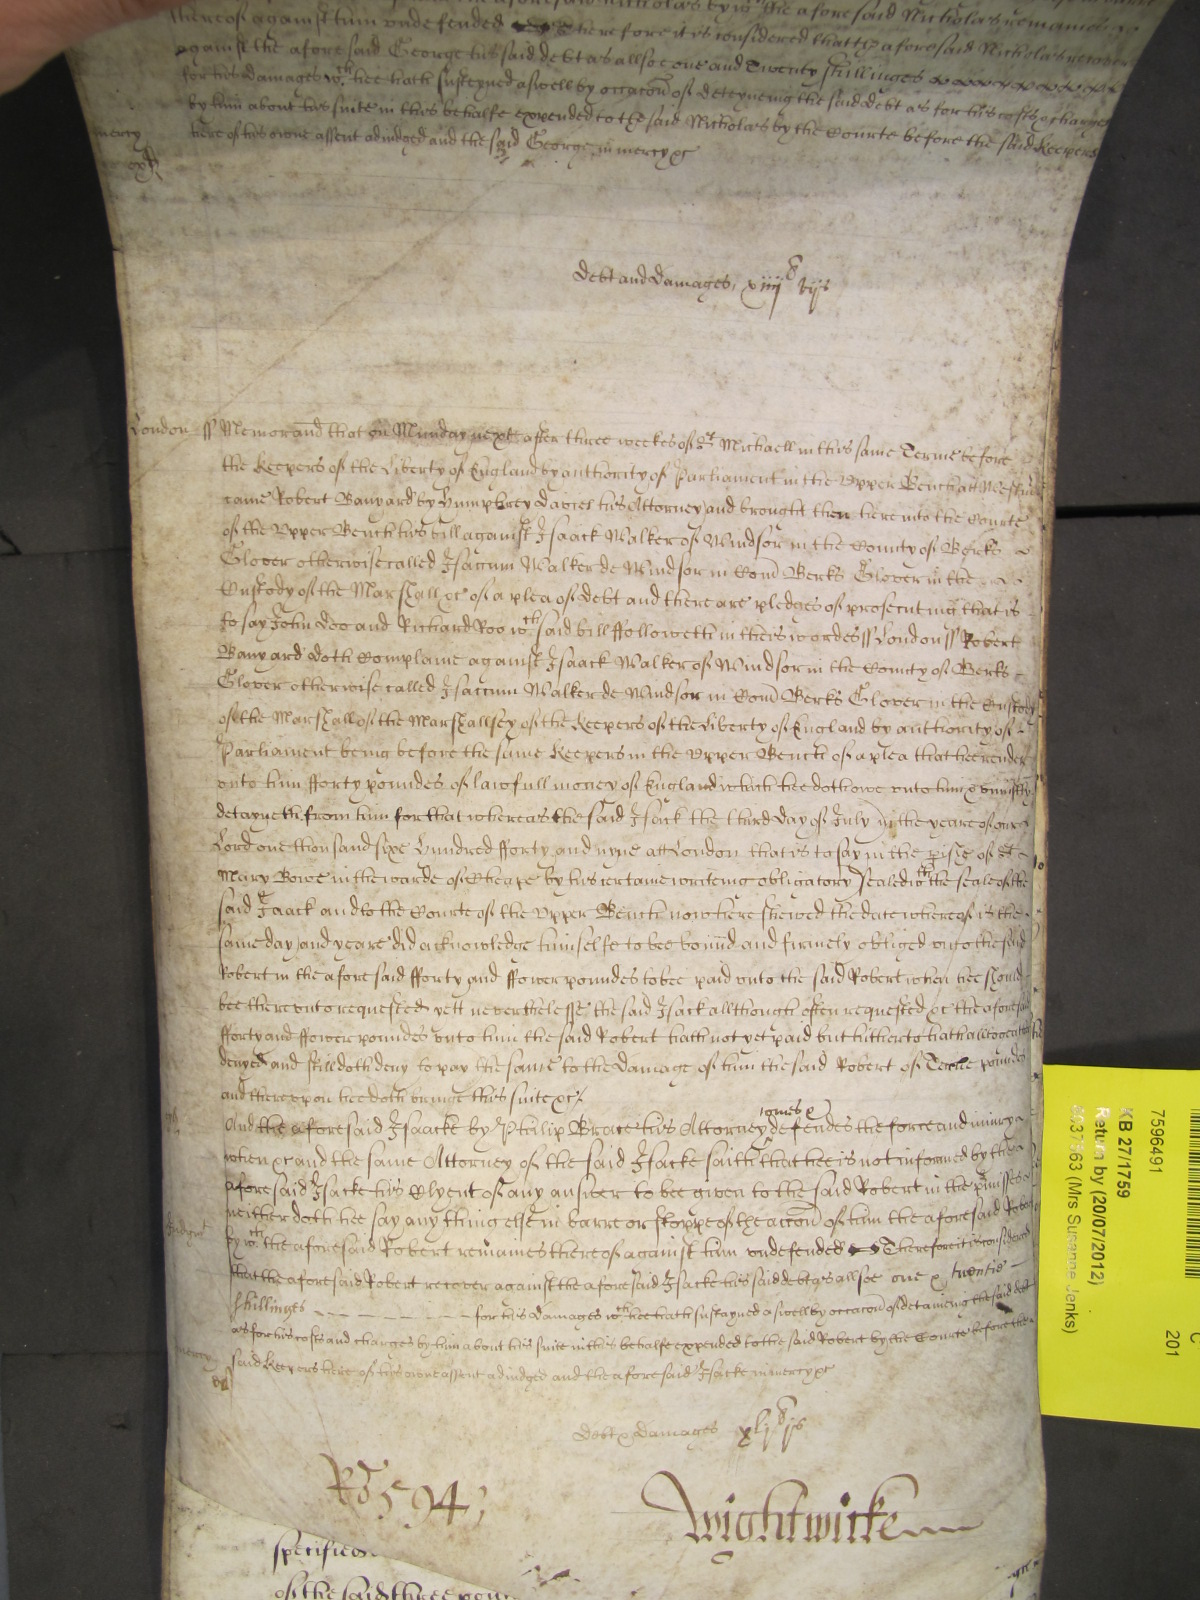 thereof against him undefended Therefore it is considered that the aforesaid Nicholas recover
against the aforesaid George his said debt as allsoe one and Twenty shillinges
for his damages wch hee hath susteyned aswell by occacon of deteyneing the said debt as for his costs & charges
by him about his suite in this behalfe expended to the said Nicholas by the Courte before the said Keepers
mercy here of his owne assent adiudged and the said George in mercy &c
Debt and damages, xiiij li vijs
London ss Memorand that on Munday next after three weekes of St Michaell in this same Terme before
the Keepers of the Liberty of England by authority of Parliament in the Upper Bench att Westm
came Robert Banyard by Humphrey Davies his Attorney and brought then here into the Courte
of the Upper Bench his bill against Isaack Walker of Windsor in the County of Berks
Glover otherwise called Isacum Walker de Windsor in Com Berks Glover in the
Custody of the Marshall &c of a plea of debt and there are pledges of prosecuting that is
to say John Doo and Richard Roo wch said bill ffolloweth in theis wordes ss London ss Robert
Banyard doth Complaine against Isaack Walker of Windsor in the County of Berks
Glover otherwise called Isacum Walker de Windsor in Com Berks Glover in the Custody
of the Marshall of the Marshallsey of the Keepers of the Liberty of England by authority of
Parliament being before the same Keepers in the Upper Bench of a plea that hee render
unto him fforty poundes of lawfull money of England which hee doth owe unto him & uniustly
detayneth from him for that whereas the said Isack the third day of July in the yeare of our
Lord one thousand sixe Hundred fforty and nyne att London that is to say in the pish of St
Mary Bowe in the warde of Cheape by his certaine writeing obligatory sealed wth the seale of the
said Isaack and to the Courte of the Upper Bench now here shewed the date whereof is the
same day and yeare did acknowledge himselfe to bee bound and firmely obliged unto the said
Robert in the aforesaid fforty and ffower poundes to bee paid unto the said Robert when hee should
bee thereunto requested yett neverthelesse the said Isack allthough often requested &c the aforesaid
fforty and ffower poundes unto him the said Robert hath not yet paid but hitherto hath altogeather
denyed and still doth deny to pay the same to the damage of him the said Robert of Tenne poundes
and thereupon hee doth bringe this suite &c
comes &
And the aforesaid Isaacke by Philip Brace his Attorney defendes the force and iniury
when &c and the same Attorney of the said Isacke saith that hee is not informed by the
aforesaid Isacke his Clyent of any answer to bee given to the said Robert in the pmisses
neither doth hee say any thing else in barre or stoppe of the accon of him the aforesaid Robert
by wch the aforesaid Robert remaines thereof against him undefended Therefore it is considered
that the aforesaid Robert recover against the aforesaid Isacke his said debt as allsoe one & twentie
shillinges for his damages wch hee hath sustayned aswell by occacon of detaineing the said debt
as for his costs and charges by him about his suite in this behalfe expended to the said Robert by the Courte before the
mercy said Keepers here of his owne assent adiudged and the aforesaid Isacke in mercy &c
Debt & damages xlj li js
Ro 594
Wightwicke
specified
of the said three
7596491
KB 27/1759
Return by (20/07/2012)
(Mrs Susanne Jenks)
201
C